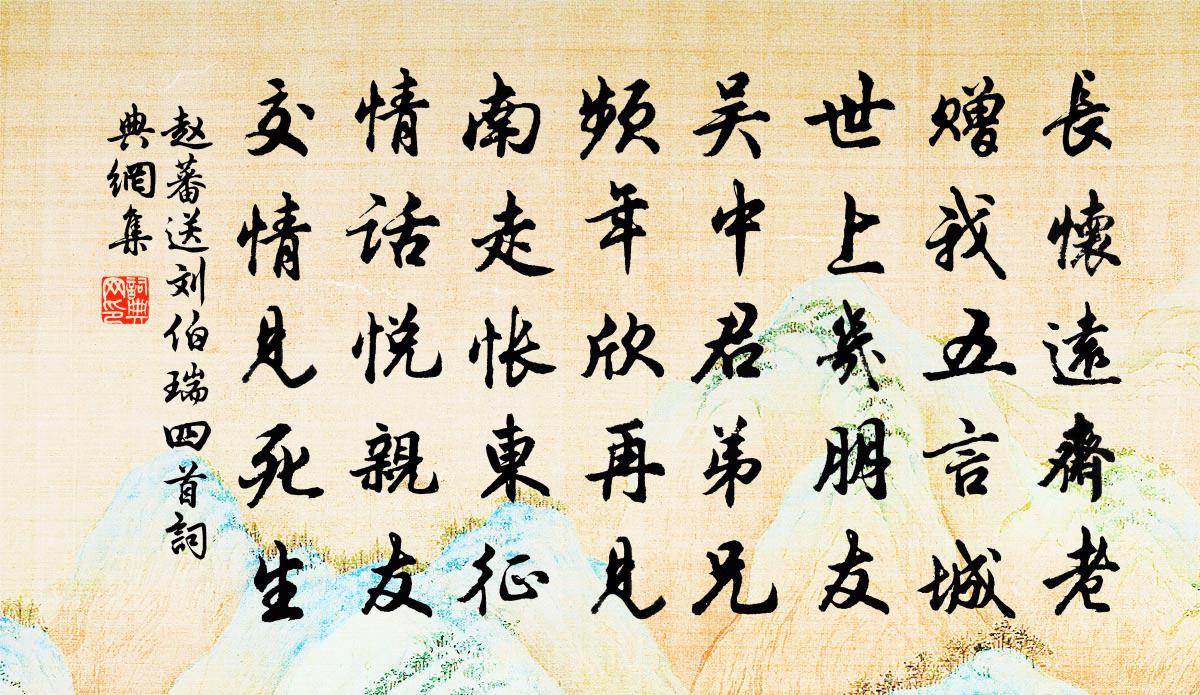 長懷遠齋老
贈我五言城
世上幾朋友
吴中君弟兄
頻年欣再見
南走悵東征
情話悦親友
交情見死生
赵蕃送刘伯瑞四首詞
典網集
詞典
网印